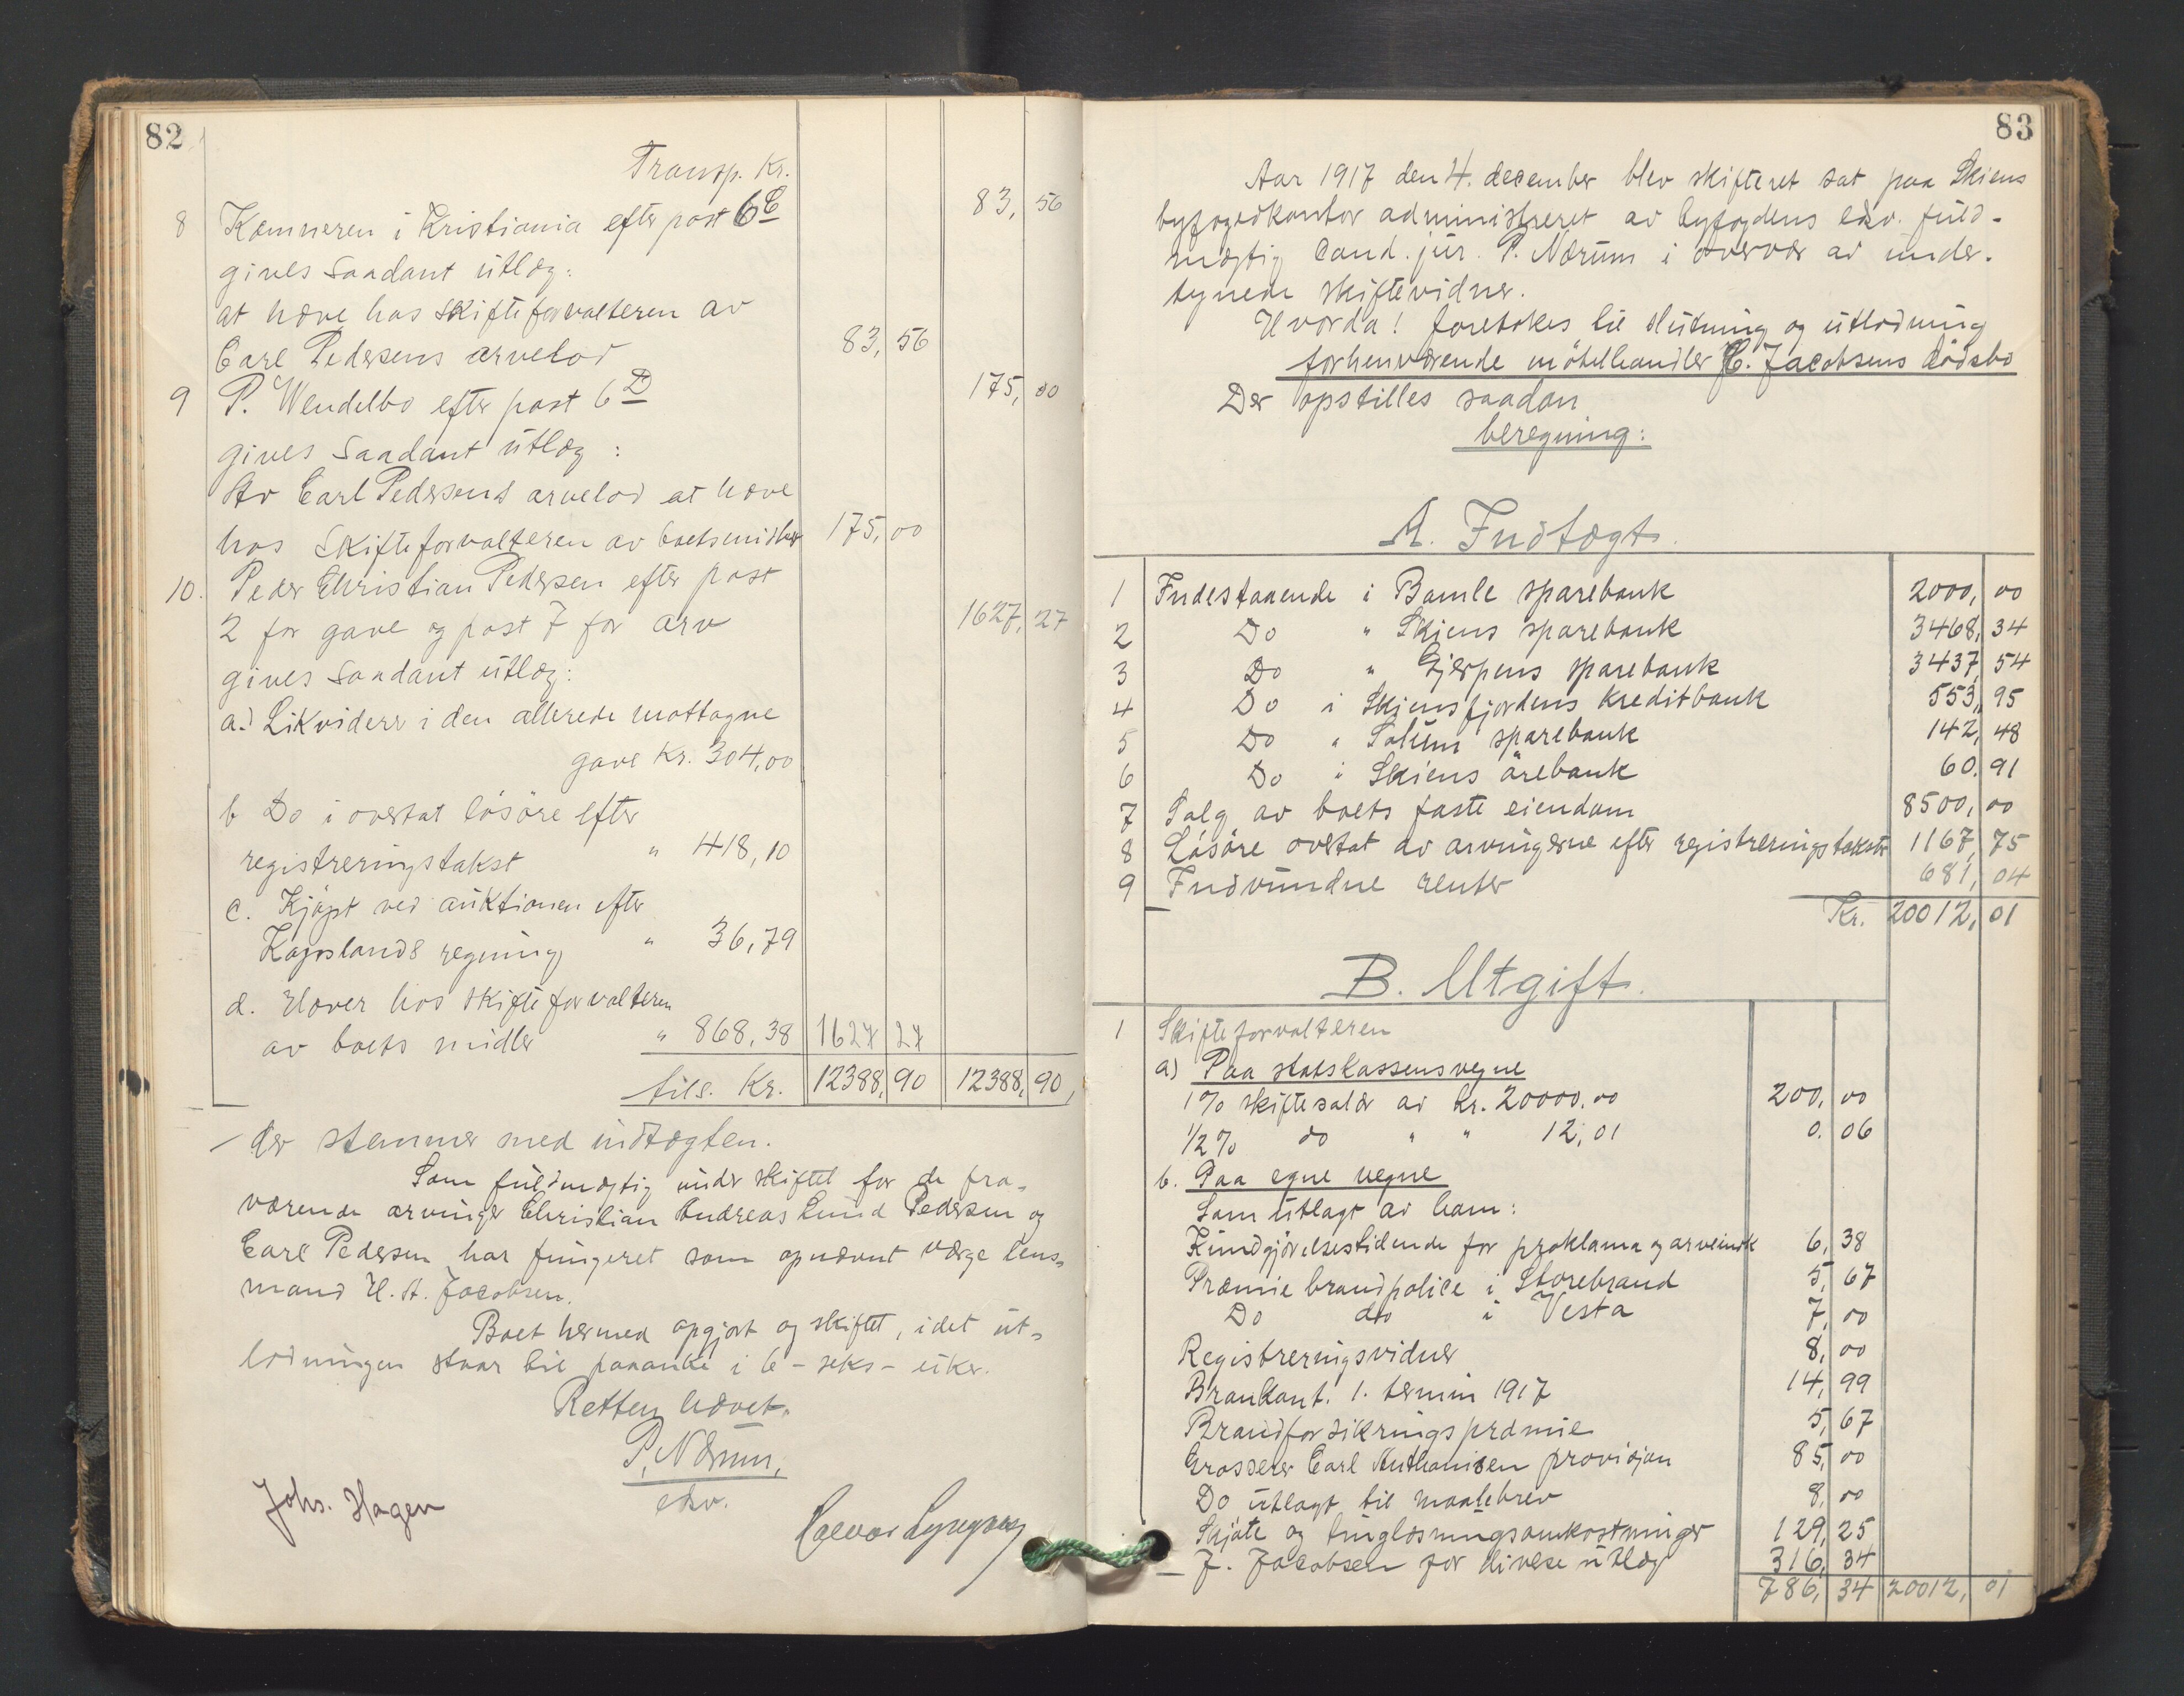 82
Transp. Kr.
8 Kæmneren i Kristiania efter post 6 C 83, 56
gives saadant utlæg:
at hæve hos skifteforvalteren av
Carl Pedersens arvelod 83, 56
9 P. Wendelbo efter post 6 D 175, 00
gives saadant utlæg:
Av Carl Pedersens arvelod at hæve
hos skifteforvalteren av boets midler 175, 00
10. Peder Christian Pedersen efter post
2 for gave og post 7 for arv 1627, 27
gives saadant utlæg:
a.) Likviderer i den allerede mottagne
gave Kr. 304,00
b Do i overtat løsøre efter
registreringstakst " 418,10
c. Kjøpt ved auktionen efter
Kaposlands regning " 36,79
d. Hæver hos skifteforvalteren
av boets midler " 868,38 1627 27
tils. Kr. 12388, 90 12388, 90,
der stemmer med indtægten.
Som fuldmægtig under skiftet for de fra-
værende arvinger Christian Andreas Lund Pedersen og
Carl Pedersen har fungeret som opnævnt værge lens-
mand H. A. Jacobsen.
Boet hermed opgjort og skiftet, idet ut-
lodningen staar til paaanke i 6 - seks - uker.
Retten hævet.
P. Nærum,
edsv.
Johs. Hagen
Halvor
83
Aar 1917 den 4. december blev skifteret sat paa Skiens
byfogedkontor administreret av byfogdens edsv. fuld-
mægtig Cand. jur. P. Nærum i overvær av under-
tegnede skiftevidner.
Hvorda! foretokes til slutning og utlodning
forhenværende møbelhandler H. Jacobsens dødsbo
Der opstilles saadan
beregning:
A. Indtægt.
1 Indestaaende i Bamle sparebank 2000, 00
2 Do " Skiens sparebank 3468, 34
3 Do " Gjerpens sparebank 3437, 54
4 Do i Skiensfjordens kreditbank 553, 95
5 Do " Solum sparebank 142, 48
6 Do i Skiens ørebank 60. 91
7 Salg av boets faste eiendom 8500, 00
8 Løsøre overtat av arvingerne efter registreringstakst 1167, 75
9 Indvundne renter 681, 04
Kr. 20012, 01
B. Utgift.
1 Skifteforvalteren
a) Paa statskassens vegne
1 % skiftesalær av Kr. 20000.00 200, 00
1/2 % do " " 12,01 0. 06
b. Paa egne vegne
Som utlagt av ham:
Kundgjørelsestidende for proklama og arveindk 6, 38
Præmie brandpolice i Storebrand 5, 67
Do do i Vesta 7, 00
Registreringsvidner 8, 00
Brankont. 1. termin 1917 14, 99
Brandforsikringspræmie 5, 67
Grosserer Carl Anthonisen provisjon 85, 00
Do utlagt til maalebrev 8, 00
Skjøte og tinglæsningsomkostninger 129, 25
J. Jacobsen for diverse utlæg 316, 34
786, 34 20012, 01